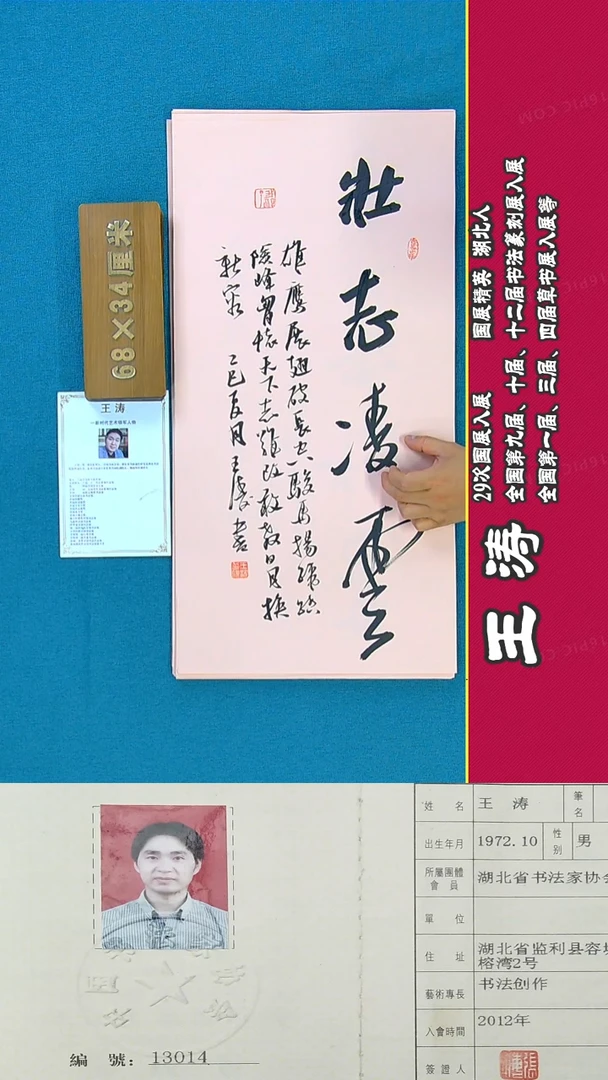 壯志凌雲
雄鹰展翅破長空駿馬揚蹄踏
险峰胷懷天下志難改敢教日月換
新容 乙巳夏月王濤書
68×34厘米
王 涛
29次国展入展 国展精英 湖北人
全国第九届、十届、十二届书法篆刻展入展
全国第一届、三届、四届草书展入展等
王涛
姓名 王 涛 筆名
出生年月 1972.10 性别 男
所屬團體會員 湖北省书法家协会
單位
住址 湖北省监利县容城
榕湾2号
藝術專長 书法创作
入會時間 2012年
簽證人
編 號: 13014